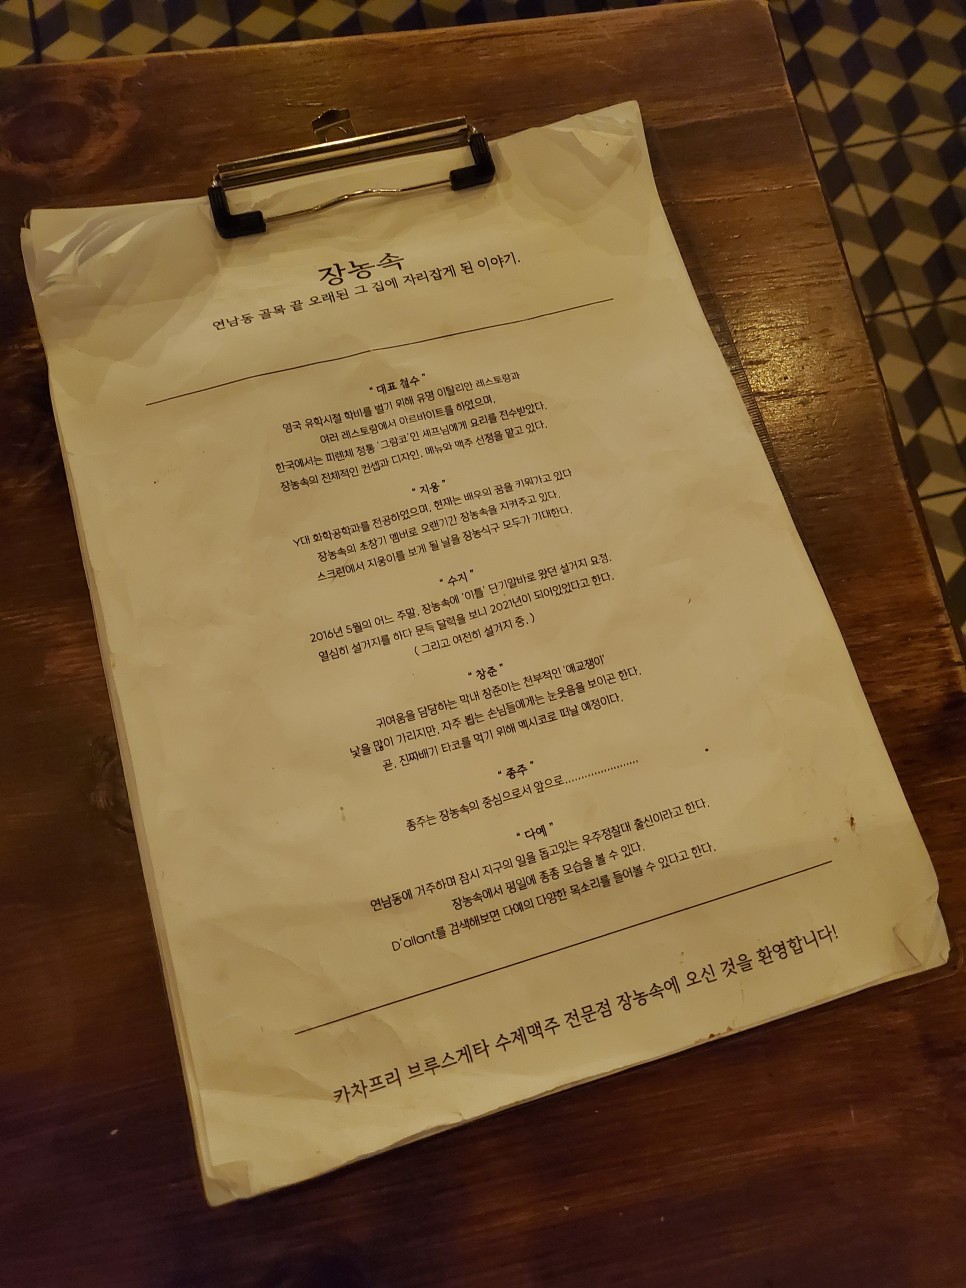 장농속
연남동 골목 끝 오래된 그 집에 자리잡게 된 이야기.
“ 대표 철수 ”
영국 유학시절 학비를 벌기 위해 유명 이탈리안 레스토랑과
여러 레스토랑에서 아르바이트를 하였으며,
한국에서는 피렌체 정통 '그람코'인 셰프님에게 요리를 전수받았다.
장농속의 전체적인 컨셉과 디자인, 메뉴와 맥주 선정을 맡고 있다.
“ 지웅 ”
Y대 화학공학과를 전공하였으며, 현재는 배우의 꿈을 키워가고 있다
장농속의 초창기 멤버로 오랜기간 장농속을 지켜주고 있다.
스크린에서 지웅이를 보게 될 날을 장농식구 모두가 기대한다.
“ 수지 ”
2016년 5월의 어느 주말, 장농속에 '이틀' 단기알바로 왔던 설거지 요정.
열심히 설거지를 하다 문득 달력을 보니 2021년이 되어있었다고 한다.
( 그리고 여전히 설거지 중. )
“ 창준 ”
귀여움을 담당하는 막내 창준이는 천부적인 '애교쟁이'
낯을 많이 가리지만, 자주 뵙는 손님들에게는 눈웃음을 보이곤 한다.
곧, 진짜배기 타코를 먹기 위해 멕시코로 떠날 예정이다.
“ 종주 ”
종주는 장농속의 중심으로서 앞으로.......................
“ 다예 ”
연남동에 거주하며 잠시 지구의 일을 돕고있는 우주정찰대 출신이라고 한다.
장농속에서 평일에 종종 모습을 볼 수 있다.
D'allant를 검색해보면 다예의 다양한 목소리를 들어볼 수 있다고 한다.
카차프리 브루스게타 수제맥주 전문점 장농속에 오신 것을 환영합니다!